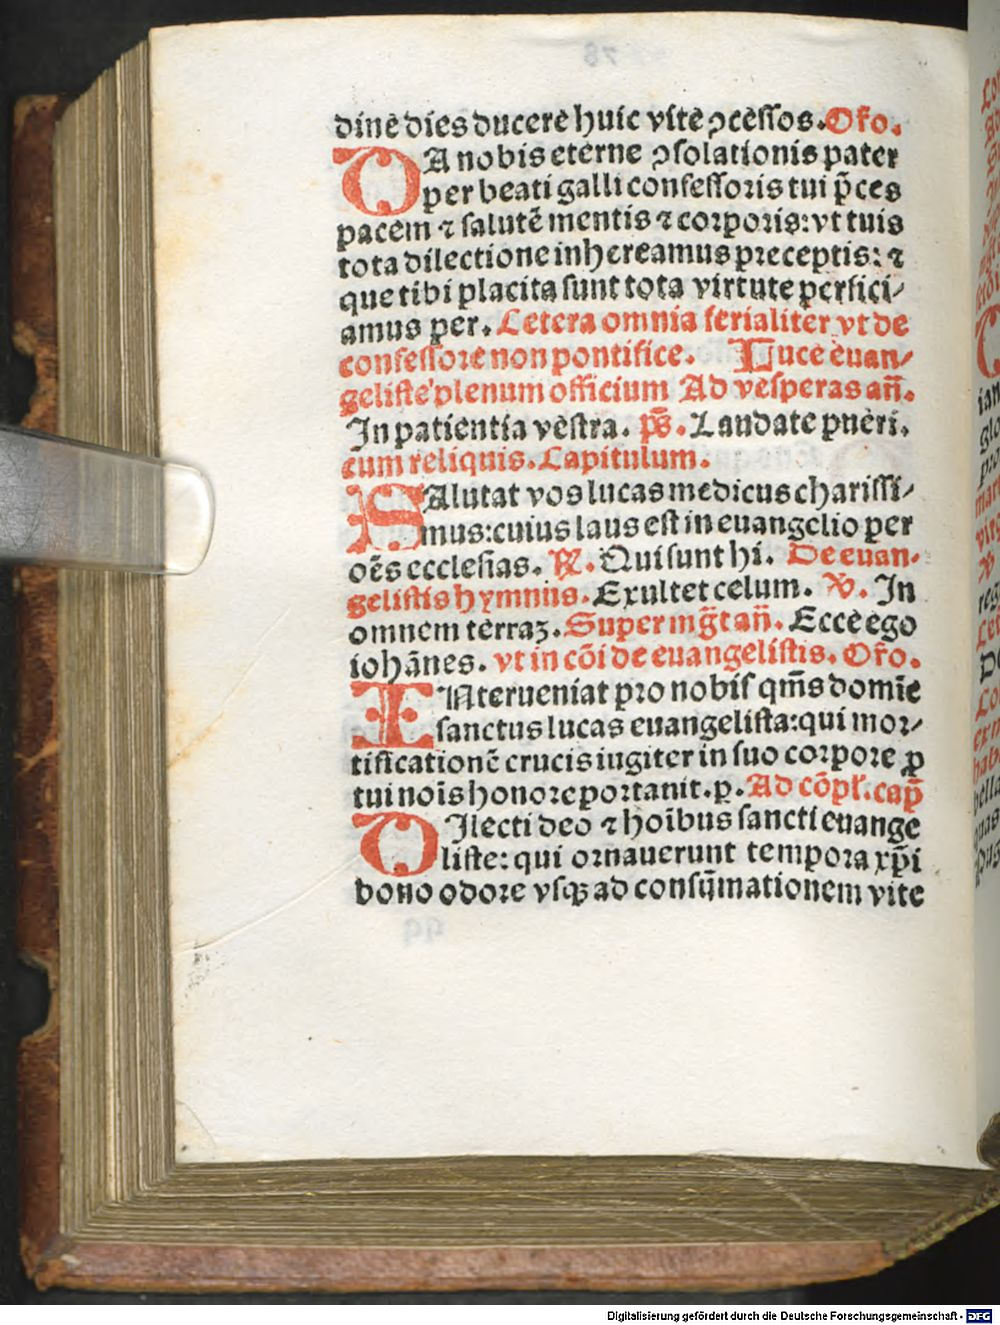 dine dies ducere huic vite ꝓcessos. Oro.
DA nobis eterne ꝯsolationis pater
per beati galli confessoris tui p̄ces
pacem ⁊ salutē mentis ⁊ corporis: vt tuis
tota dilectione inhereamus preceptis: ⁊
que tibi placita sunt tota virtute perfici⸗
amus per. Cetera omnia ferialiter vt de
confessore non pontifice. Luce euan⸗
geliste plenum officium Ad vesperas an̄.
In patientia vestra. ps̄. Laudate pueri.
cum reliquis. Capitulum.
SAlutat vos lucas medicus charissi⸗
mus: cuius laus est in euangelio per
oēs ecclesias. ℟. Qui sunt hi. De euan⸗
gelistis hymnus. Exultet celum. ℣. In
omnem terraꝫ. Super mḡt an̄. Ecce ego
iohānes. vt in cōi de euangelistis. Oro.
INterueniat pro nobis qm̄s domīe
sanctus lucas euangelista: qui mor⸗
tificationē crucis iugiter in suo corpore ꝓ
tui noīs honore portauit. p. Ad cōpl̄. cap̄
DIlecti deo ⁊ hoībus sancti euange
liste: qui ornauerunt tempora xp̄i
bono odore vsqꝫ ad consūmationem vite
Digitalisierung gefördert durch die Deutsche Forschungsgemeinschaft - DFG